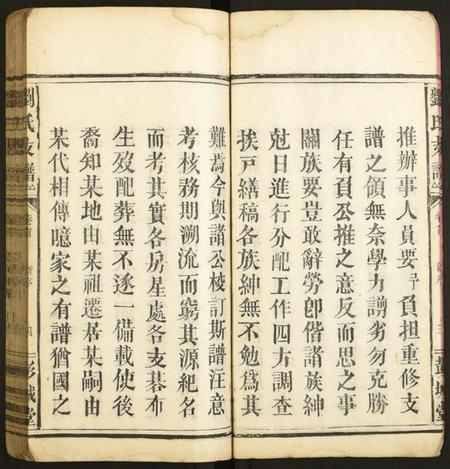 劉氏支譜 卷首 三 彭城堂
推辦事人員要予負担重修支
譜之領無奈學力譾劣勿克勝
任有負公推之意反而思之事
關族要豈敢辭勞卽偕諸族紳
尅日進行分配工作四方調查
挨戸繕稿各族紳無不勉爲其
難焉今與諸公校訂斯譜注意
考核務期溯流而窮其源紀名
而考其實各房星處各支碁布
生歿配葬無不逐一備載使後
裔知某地由某祖遷居某嗣由
某代相傳噫家之有譜猶國之
劉氏支譜 卷首 四 彭城堂